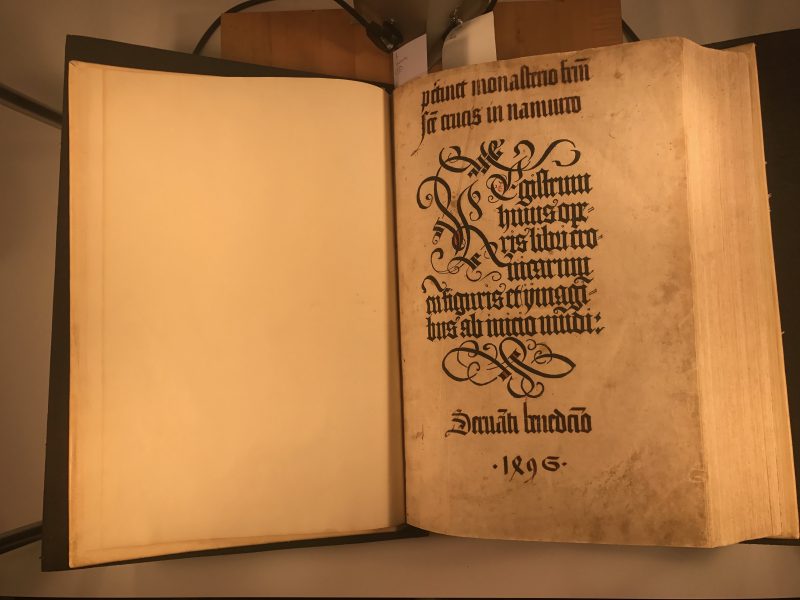 ꝑtinet monasterio frm̄
sc̄e crucis in namurco
REgistrum
huius ope-
ris libri cro-
nicarum
cū figuris et ymagi-
bus ab inicio mūdi:
Seruāti benedcīo
·1496·